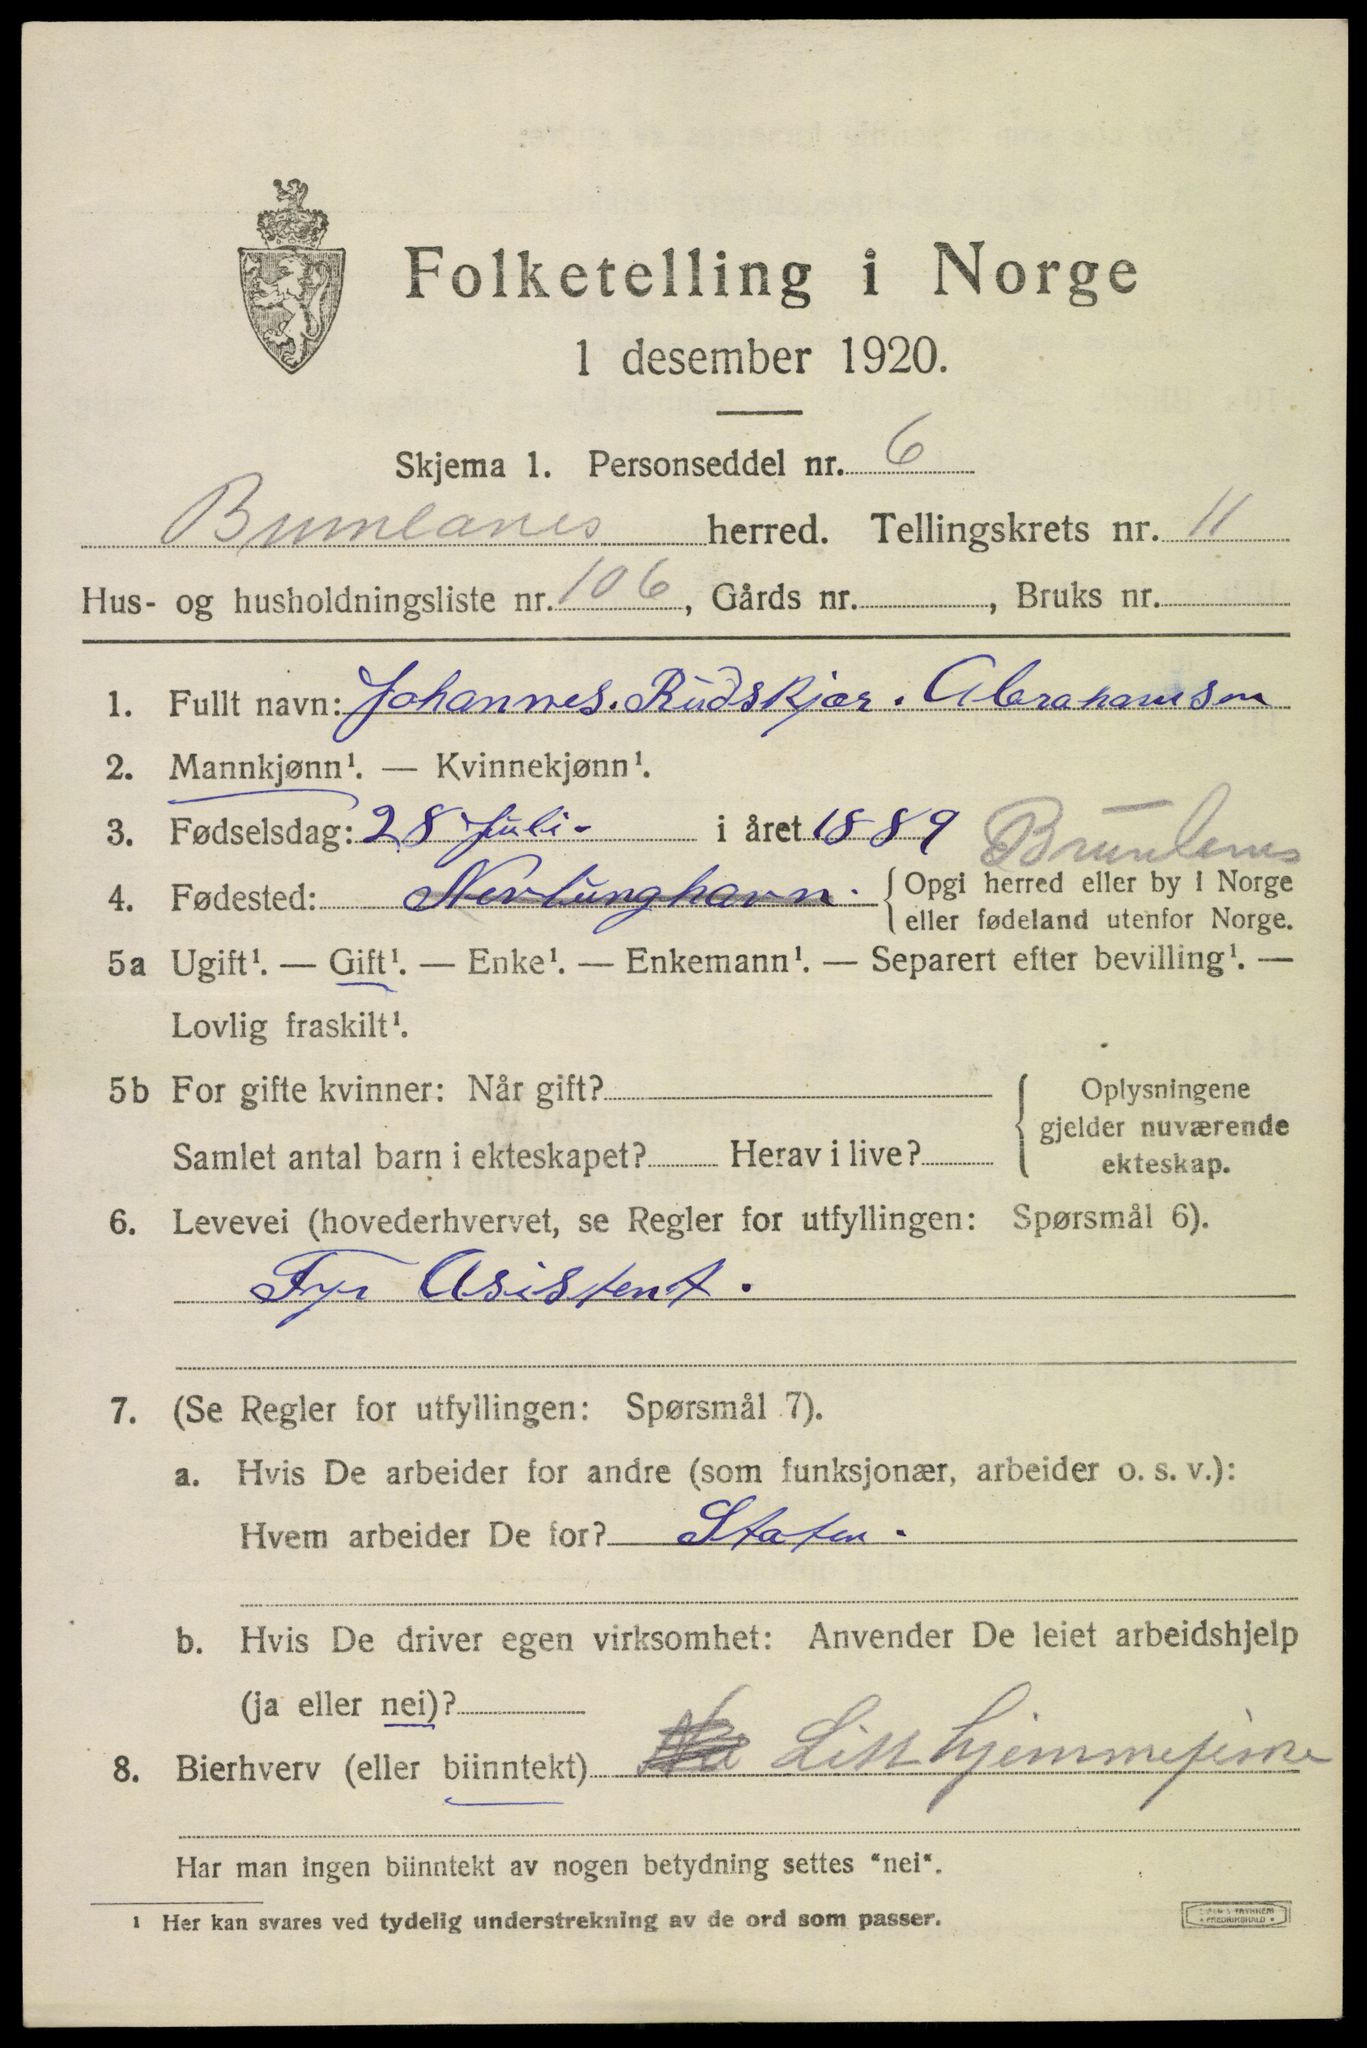 Folketelling i Norge
1 desember 1920.
Skjema 1. Personseddel nr. 6
Brunlanes herred. Tellingskrets nr. 11
Hus- og husholdningsliste nr. 106, Gårds nr. , Bruks nr.
1. Fullt navn: Johannes. Rudskjær. Abrahamsen
2. Mannkjønn¹. — Kvinnekjønn¹.
3. Fødselsdag: 28 Juli - i året 1889 Brunlanes
4. Fødested: Nevlunghavn. { Opgi herred eller by i Norge
eller fødeland utenfor Norge.
5a Ugift¹. — Gift¹. — Enke¹. — Enkemann¹. — Separert efter bevilling¹. —
Lovlig fraskilt¹.
5b For gifte kvinner: Når gift? { Oplysningene
gjelder nuværende
Samlet antal barn i ekteskapet? Herav i live? ekteskap.
6. Levevei (hovederhvervet, se Regler for utfyllingen: Spørsmål 6).
Fyr Asistent.
7. (Se Regler for utfyllingen: Spørsmål 7).
a. Hvis De arbeider for andre (som funksjonær, arbeider o. s. v.):
Hvem arbeider De for? Staten.
b. Hvis De driver egen virksomhet: Anvender De leiet arbeidshjelp
(ja eller nei)?
8. Bierhverv (eller biinntekt) Litt hjemmefiske
Har man ingen biinntekt av nogen betydning settes "nei".
¹ Her kan svares ved tydelig understrekning av de ord som passer.